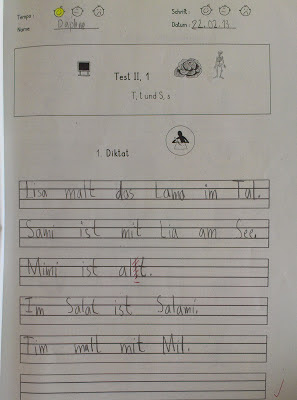 Tempo: Schrift:
Name: Daphne Datum: 22.02.13
Test II, 1
T, t und S, s
1. Diktat
Lisa malt das Lama im Tal.
Sami ist mit Lia am See.
Mimi ist alt.
Im Salat ist Salami.
Tim malt mit Mil.